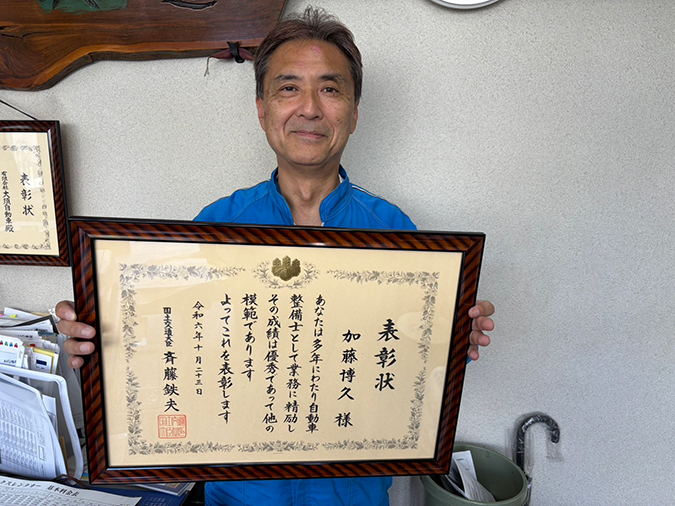 表彰状
加藤博久 様
あなたは多年にわたり自動車
整備士として業務に精励し
その成績は優秀であって他の
模範であります
よってこれを表彰します
令和六年十月二十三日
国土交通大臣 斉藤鉄夫
表彰状
有限会社大須自動車殿